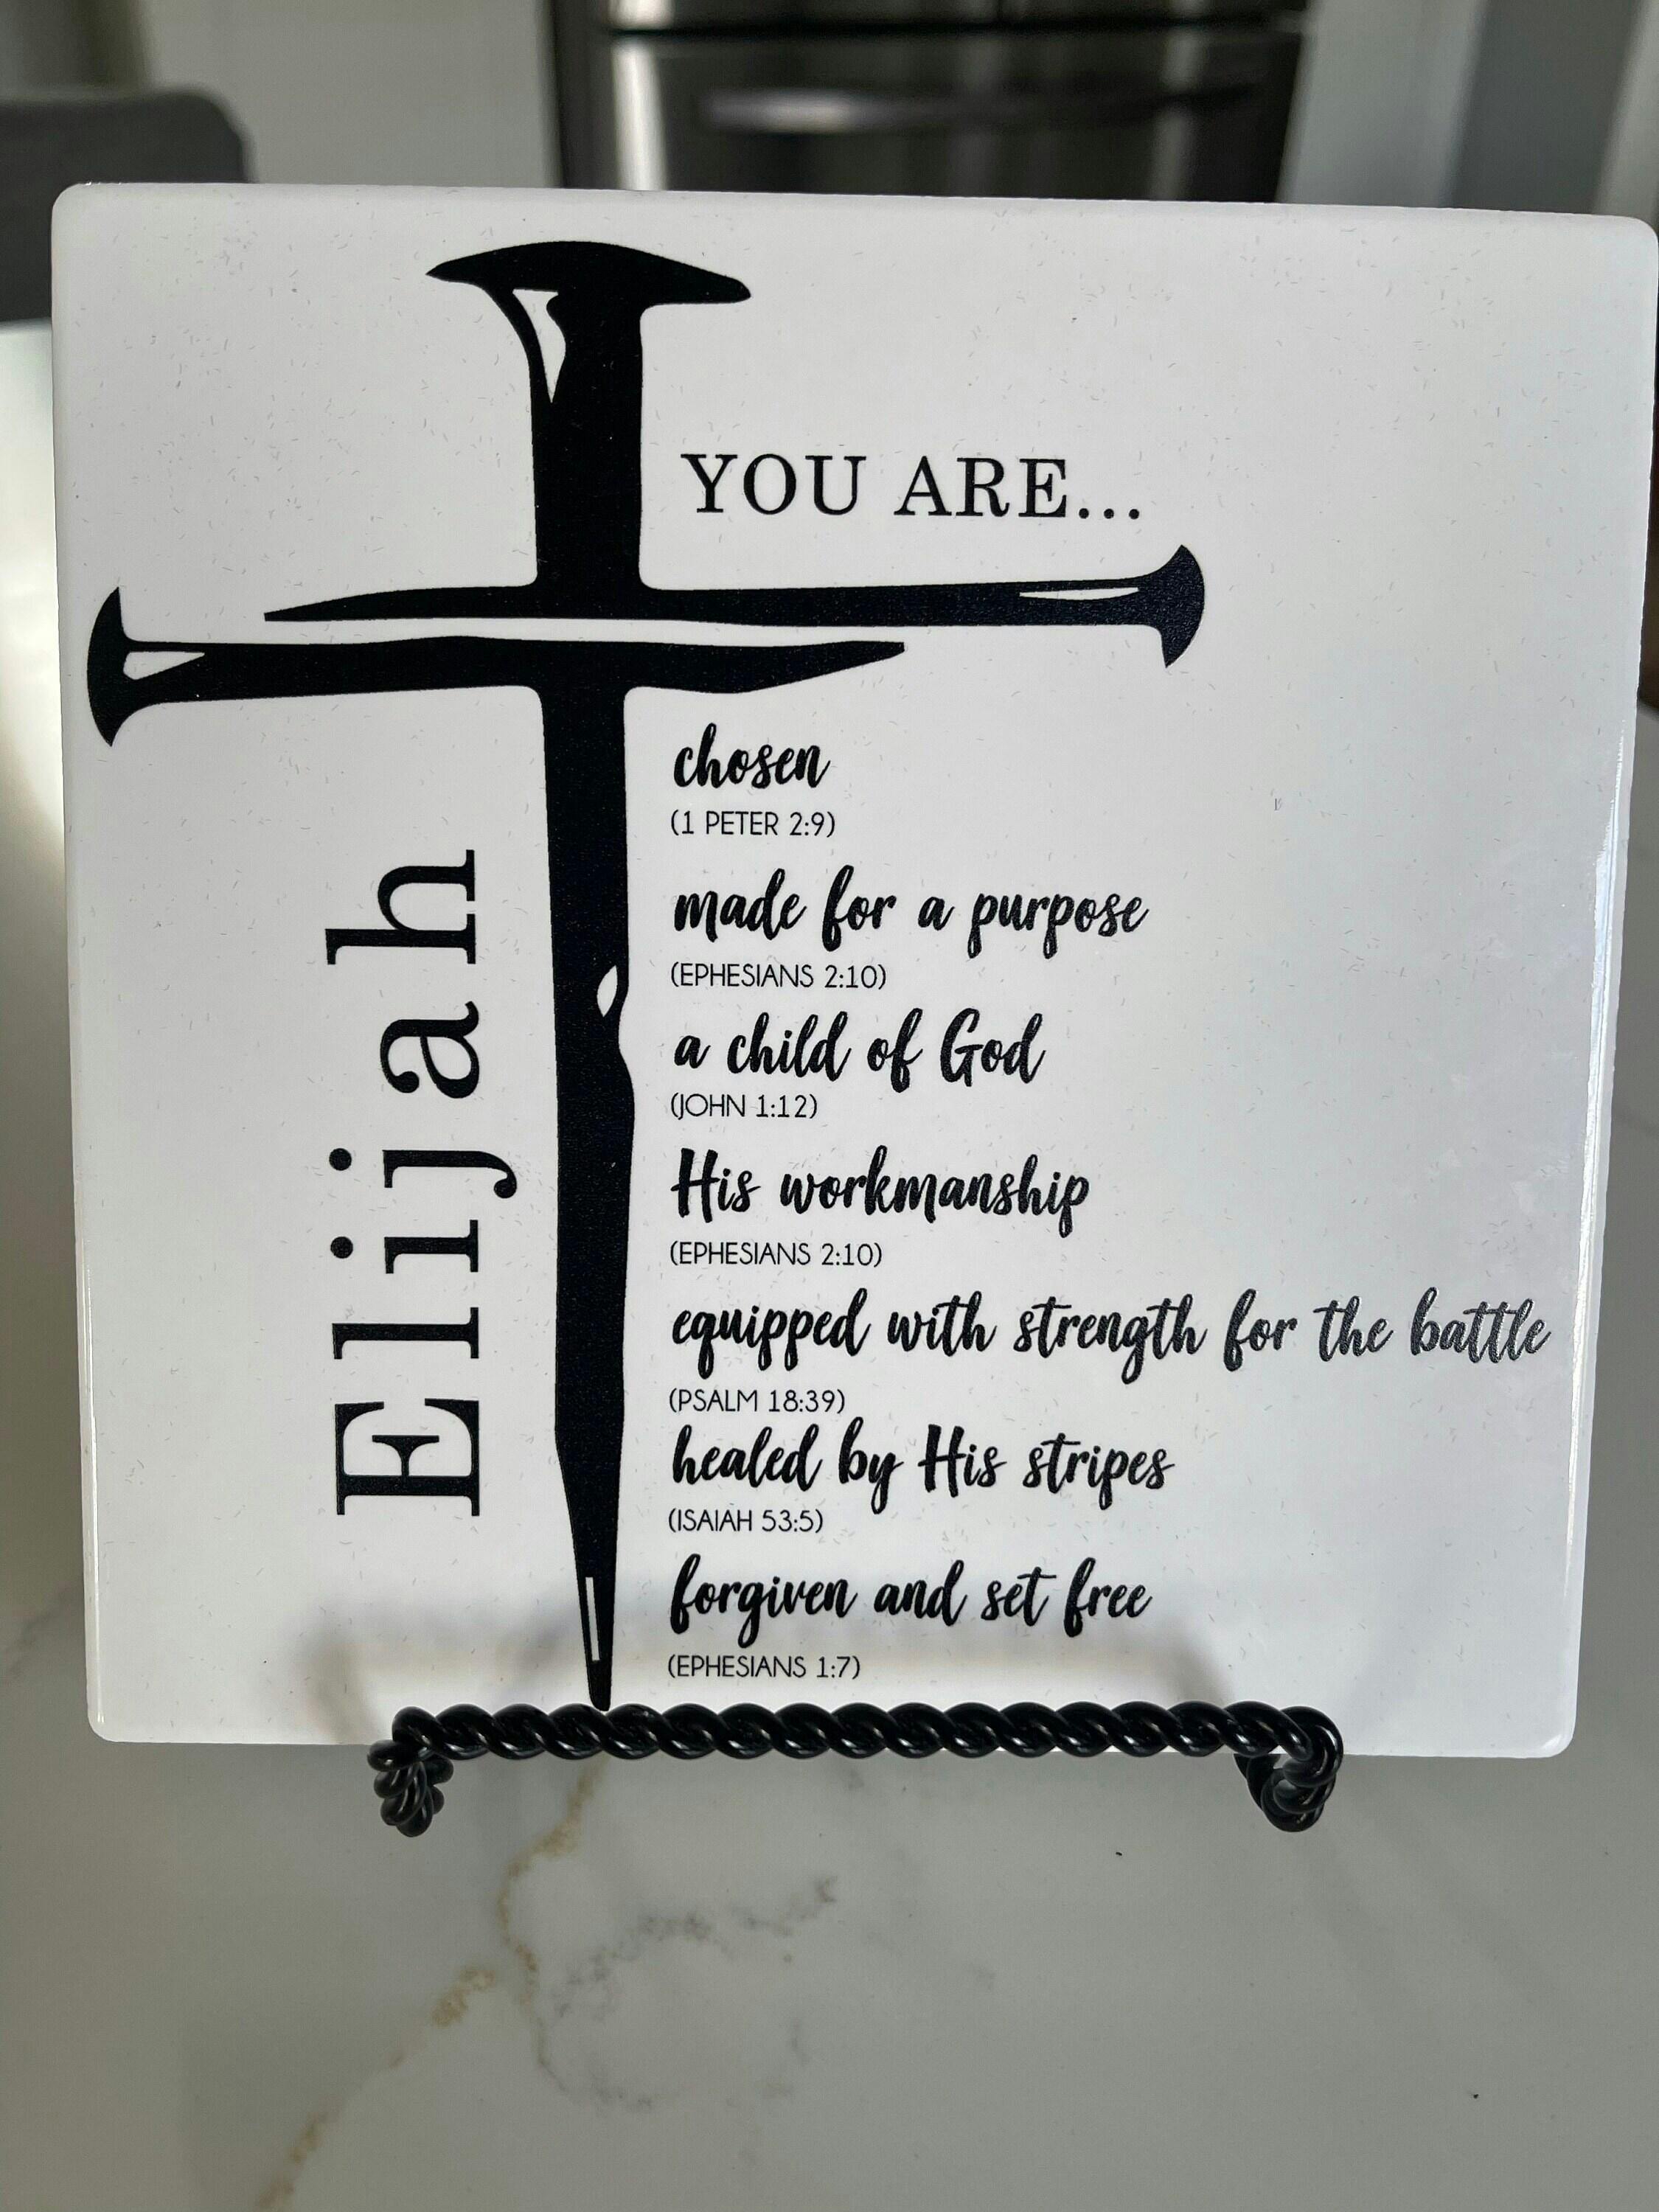 YOU ARE...
Elijah
chosen
(1 PETER 2:9)
made for a purpose
(EPHESIANS 2:10)
a child of God
(JOHN 1:12)
His workmanship
(EPHESIANS 2:10)
equipped with strength for the battle
(PSALM 18:39)
healed by His stripes
(ISAIAH 53:5)
forgiven and set free
(EPHESIANS 1:7)